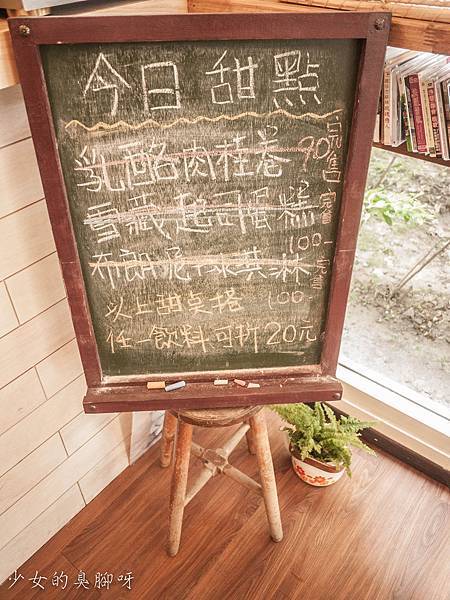 今日 甜點
乳酪肉桂卷 90 已售完
雪藏起司蛋糕 100- 完售
布朗尼冰淇淋 100- 完售
以上甜點搭
任一飲料可折20元
少女的臭腳呀